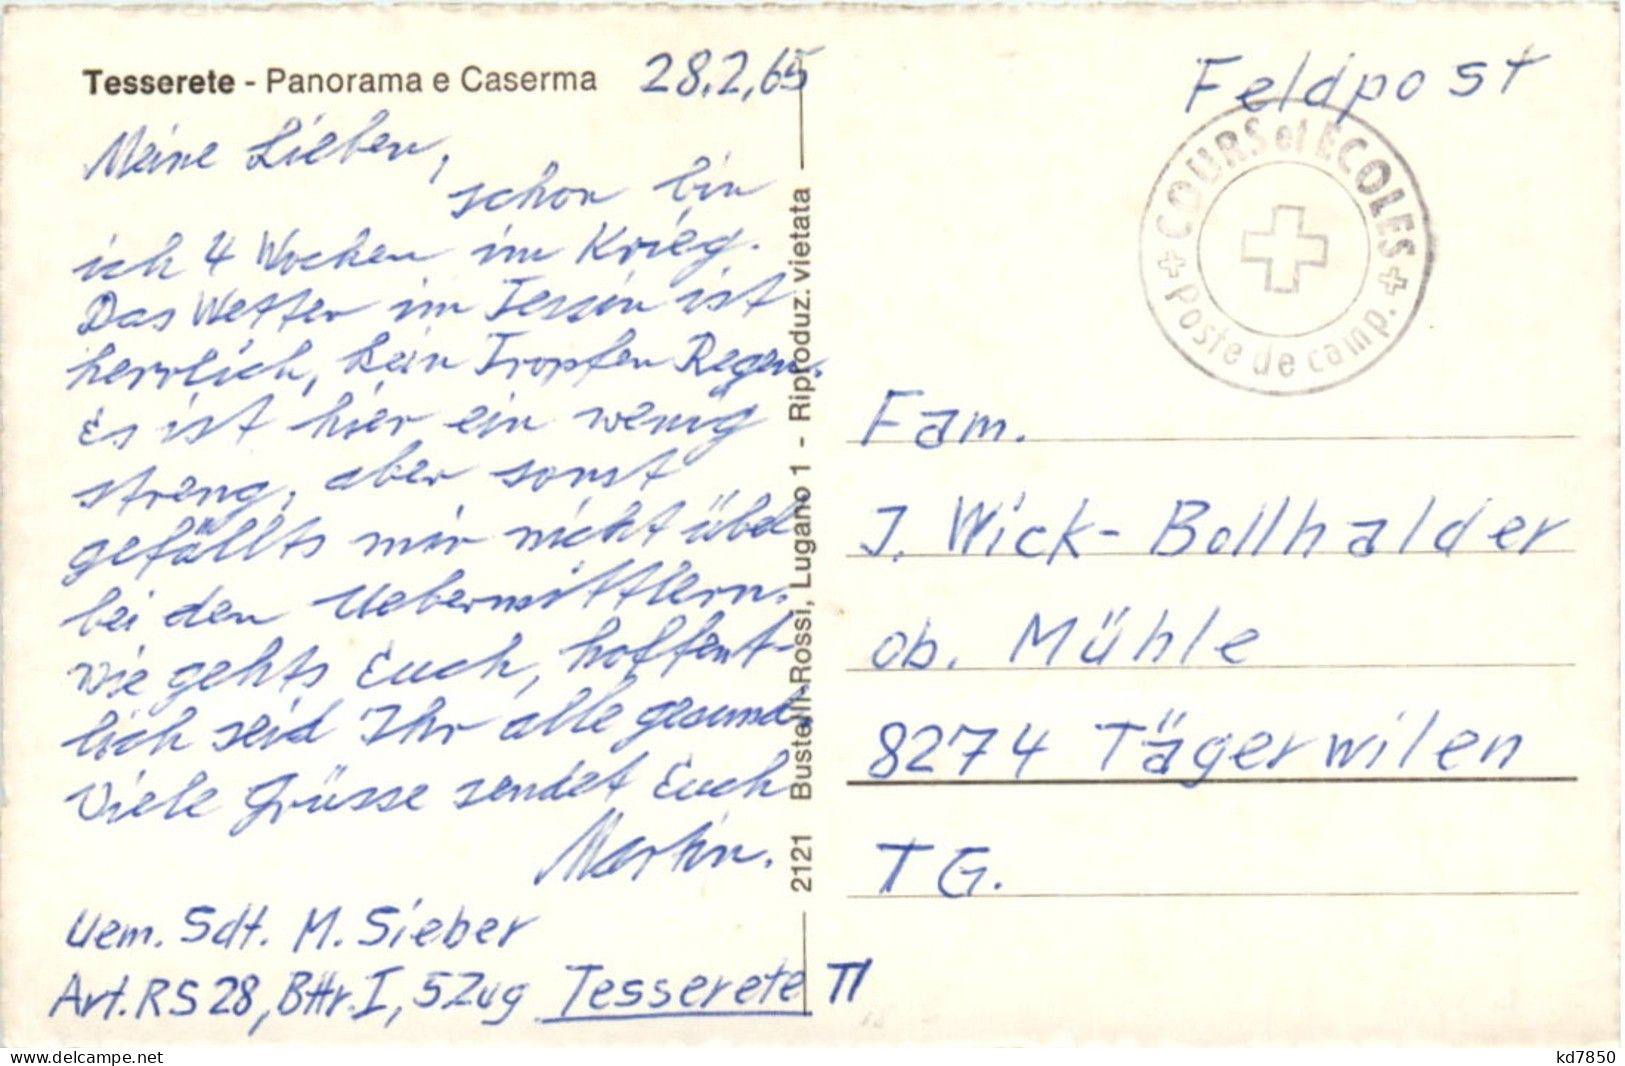 Tesserete - Panorama e Caserma
28.2.65
Meine Lieben,
schon bin
ich 4 Wochen im Krieg.
Das Wetter im Tessin ist
herrlich, kein Tropfen Regen.
Es ist hier ein wenig
streng, aber sonst
gefällts mir nicht übel
bei den Uebermittlern.
Wie gehts Euch, hoffent-
lich seid Ihr alle gesund.
Viele Grüsse sendet Euch
Martin.
Uem. Sdt. M. Sieber
Art. RS 28, Bttr. I, 5 Zug Tesserete TI
2121 Bustelli-Rossi, Lugano 1 - Riproduz. vietata
Feldpost
COURS et ECOLES
Poste de camp.
Fam.
J. Wick-Bollhalder
ob. Mühle
8274 Tägerwilen
TG.
delcampe.net
kd7850